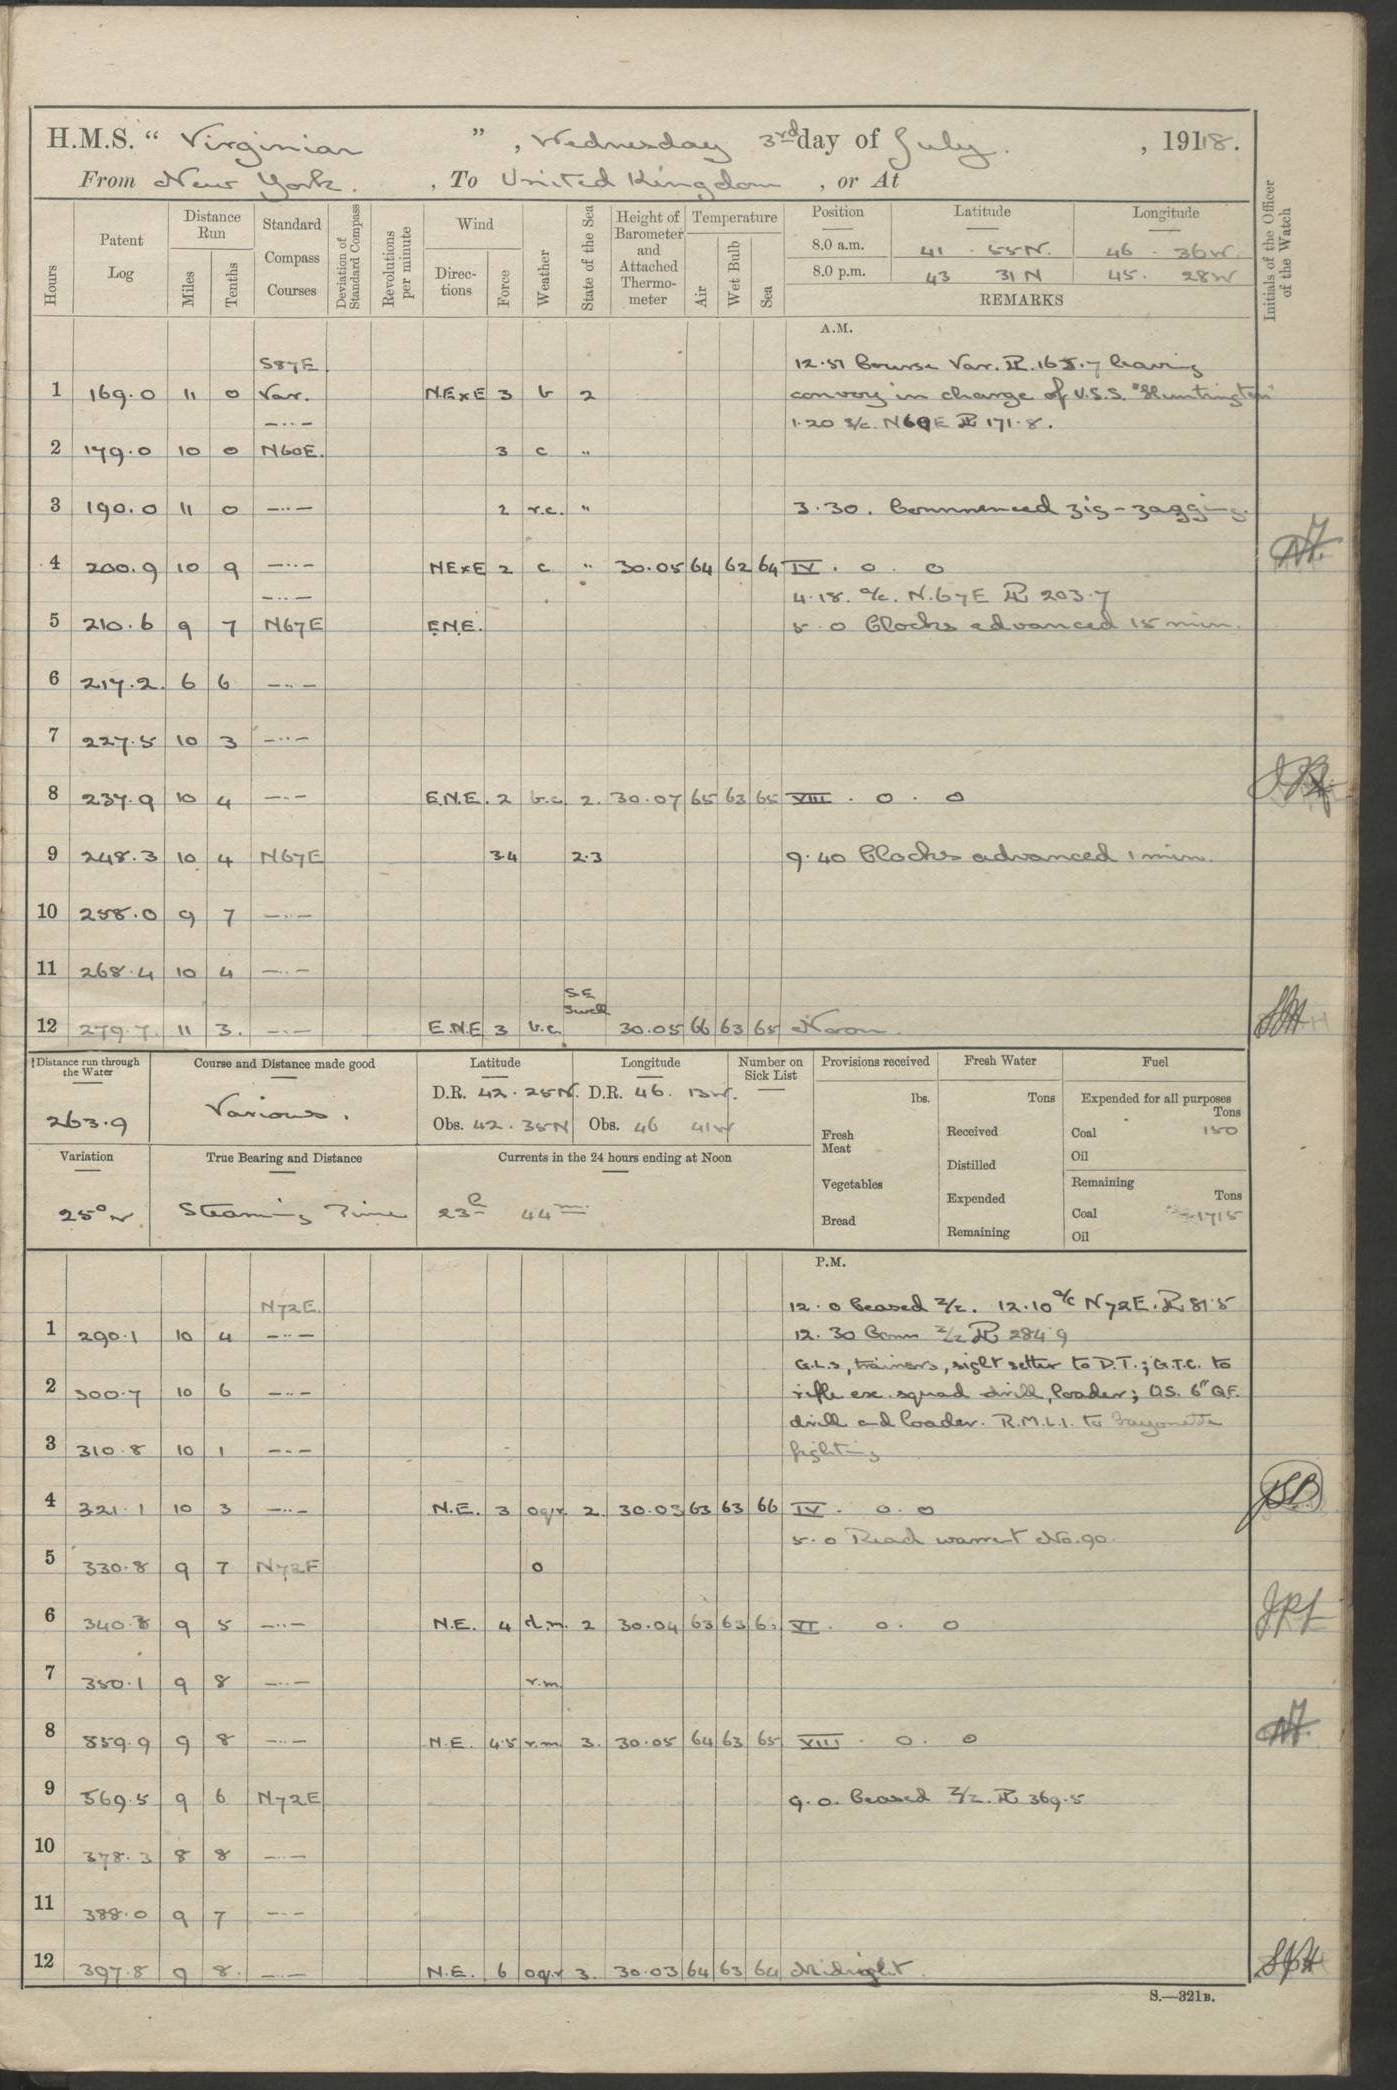 H.M.S. " Virginian ", Wednesday 3rd day of July. , 1918.
From New York. , To United Kingdom , or At
Hours Patent Log Distance Run Miles Tenths Standard Compass Courses Deviation of Standard Compass Revolutions per minute Wind Directions Force Weather State of the Sea Height of Barometer and Attached Thermometer Temperature Air Wet Bulb Sea Position Latitude Longitude Initials of the Officer of the Watch
8.0 a.m. 41 . 55 N. 46 . 36 W.
8.0 p.m. 43 31 N 45 . 28 W
REMARKS
A.M.
S87E 12.51 Course Var. PL 165.7 leaving
1 169.0 11 0 Var. NExE 3 b 2 convoy in charge of U.S.S. "Huntington"
—..— 1.20 a/c. N60E PL 171.8.
2 179.0 10 0 N60E. 3 c "
3 190.0 11 0 —..— 2 r.c. " 3.30. Commenced zig-zagging.
4 200.9 10 9 —..— NExE 2 c " 30.05 64 62 64 IV . 0 . 0
—..— 4.18. a/c. N.67E PL 203.7
5 210.6 9 7 N67E E.N.E. 5.0 Clocks advanced 15 min.
6 217.2. 6 6 —..—
7 227.5 10 3 —..—
8 237.9 10 4 —..— E.N.E. 2 b.c. 2. 30.07 65 63 65 VIII . 0 . 0
9 248.3 10 4 N67E 3.4 2.3 9.40 Clocks advanced 1 min.
10 258.0 9 7 —..—
11 268.4 10 4 —..—
S.E. Swell
12 279.7. 11 3. —..— E.N.E 3 b.c. 30.05 66 63 65 Noon.
Distance run through the Water Course and Distance made good Latitude Longitude Number on Sick List Provisions received Fresh Water Fuel
263.9 Various. D.R. 42 . 25N. D.R. 46 . 13W. lbs. Tons Expended for all purposes Tons
Obs. 42 . 35N Obs. 46 41W Fresh Meat Received Coal 150
Oil
Variation True Bearing and Distance Currents in the 24 hours ending at Noon Distilled
Vegetables Remaining Tons
25° W Steaming Time 23h 44m Expended Coal 1715
Bread Remaining Oil
P.M.
N72E. 12.0 Ceased Z/z. 12.10 a/c N72E. PL 81.5
1 290.1 10 4 —..— 12.30 Comm Z/z PL 284.9
G.L.s, trainers, sight setter to D.T.; G.T.C. to
2 300.7 10 6 —..— rifle exc. squad drill, loader; O.S. 6" Q.F.
drill and loader. R.M.L.I. to bayonette
3 310.8 10 1 —..— fighting
4 321.1 10 3 —..— N.E. 3 oq.r. 2. 30.03 63 63 66 IV . 0 . 0 JSB
5.0 Read warrant No. 90.
5 330.8 9 7 N72E o
6 340.3 9 5 —..— N.E. 4 d.m. 2 30.04 63 63 VI . 0 . 0
7 350.1 9 8 —..— r.m.
8 359.9 9 8 —..— N.E. 4.5 r.m. 3. 30.05 64 63 65 VIII . 0 . 0
9 369.5 9 6 N72E 9.0. Ceased Z/z. PL 369.5
10 378.3 8 8 —..—
11 388.0 9 7 —..—
12 397.8 9 8. —..— N.E. 6 oq.r 3. 30.03 64 63 64 Midnight.
S.—321B.